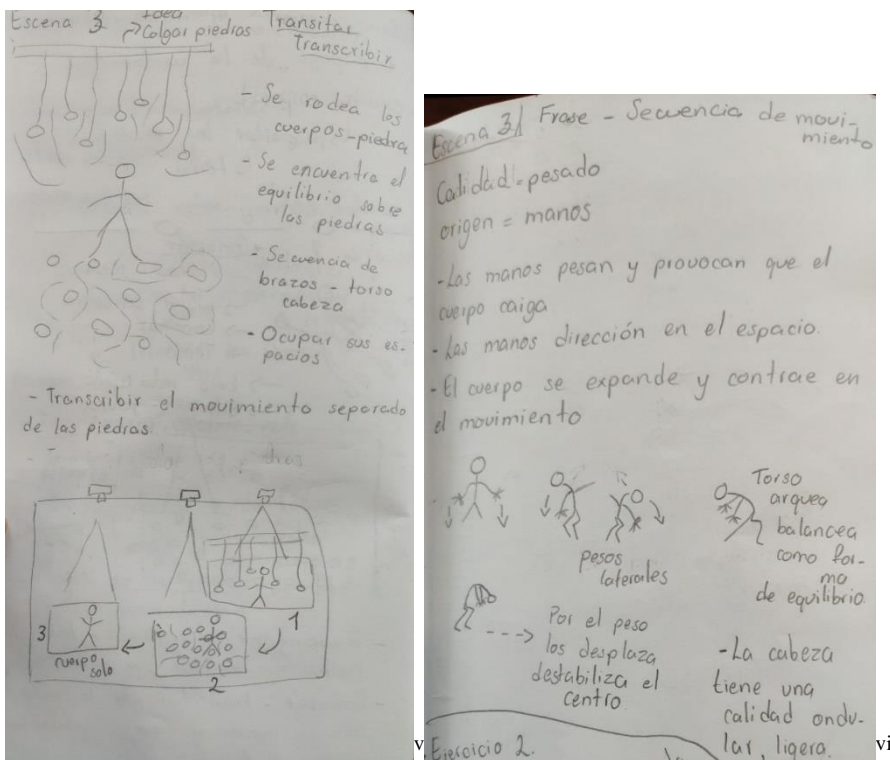 Escena 3
Idea
→ Colgar piedras
Transitar
Transcribir
- Se rodea los
cuerpos-piedra
- Se encuentra el
equilibrio sobre
las piedras
- Secuencia de
brazos - torso
cabeza
- Ocupar sus es-
pacios
- Transcribir el movimiento separado
de las piedras
-
1
2
3
cuerpo
solo
v
Escena 3/ Frase - Secuencia de movi-
miento
Calidad = pesado
origen = manos
- Las manos pesan y provocan que el
cuerpo caiga
- Las manos dirección en el espacio.
- El cuerpo se expande y contrae en
el movimiento
pesos
laterales
Torso
arquea
balancea
como for-
ma
de equilibrio
Por el peso
los desplaza
destabiliza el
centro
- La cabeza
tiene una
calidad ondu-
lar, ligera.
Ejercicio 2.
vi